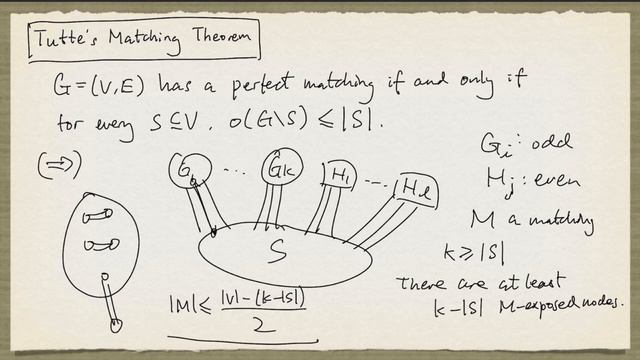 Tutte's Matching Theorem
G=(V,E) has a perfect matching if and only if
for every S⊆V, o(G\S) ≤ |S|.
(⇒)
G₁ ... Gk H₁ --- Hℓ
S
|M| ≤ (|V|-(k-|S|))/2
Gᵢ: odd
Hⱼ: even
M a matching
k ≥ |S|
There are at least
k-|S| M-exposed nodes.